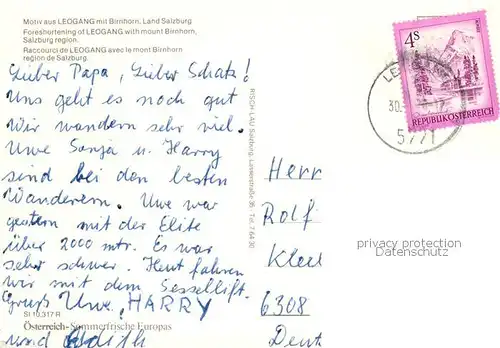 Motiv aus LEOGANG mit Birnhorn, Land Salzburg
Foreshortening of LEOGANG with mount Birnhorn,
Salzburg region.
Raccourci de LEOGANG avec le mont Birnhorn
région de Salzburg.
Lieber Papa, Lieber Schatz!
Uns geht es noch gut
Wir wandern sehr viel.
Uwe Sonja u. Harry
sind bei den besten
Wanderern. Uwe war
gestern mit der Elite
über 2000 mtr. Es war
sehr schwer. Heut fahren
wir mit dem Sessellift.
Gruß Uwe, HARRY
und Edith
St 10.317 R
Österreich - Sommerfrische Europas
RISCH-LAU Salzburg, 35 Tel. 7 64 30
4 S
REPUBLIK ÖSTERREICH
30.
5771
Herr
Rolf
6308
privacy protection
Datenschutz